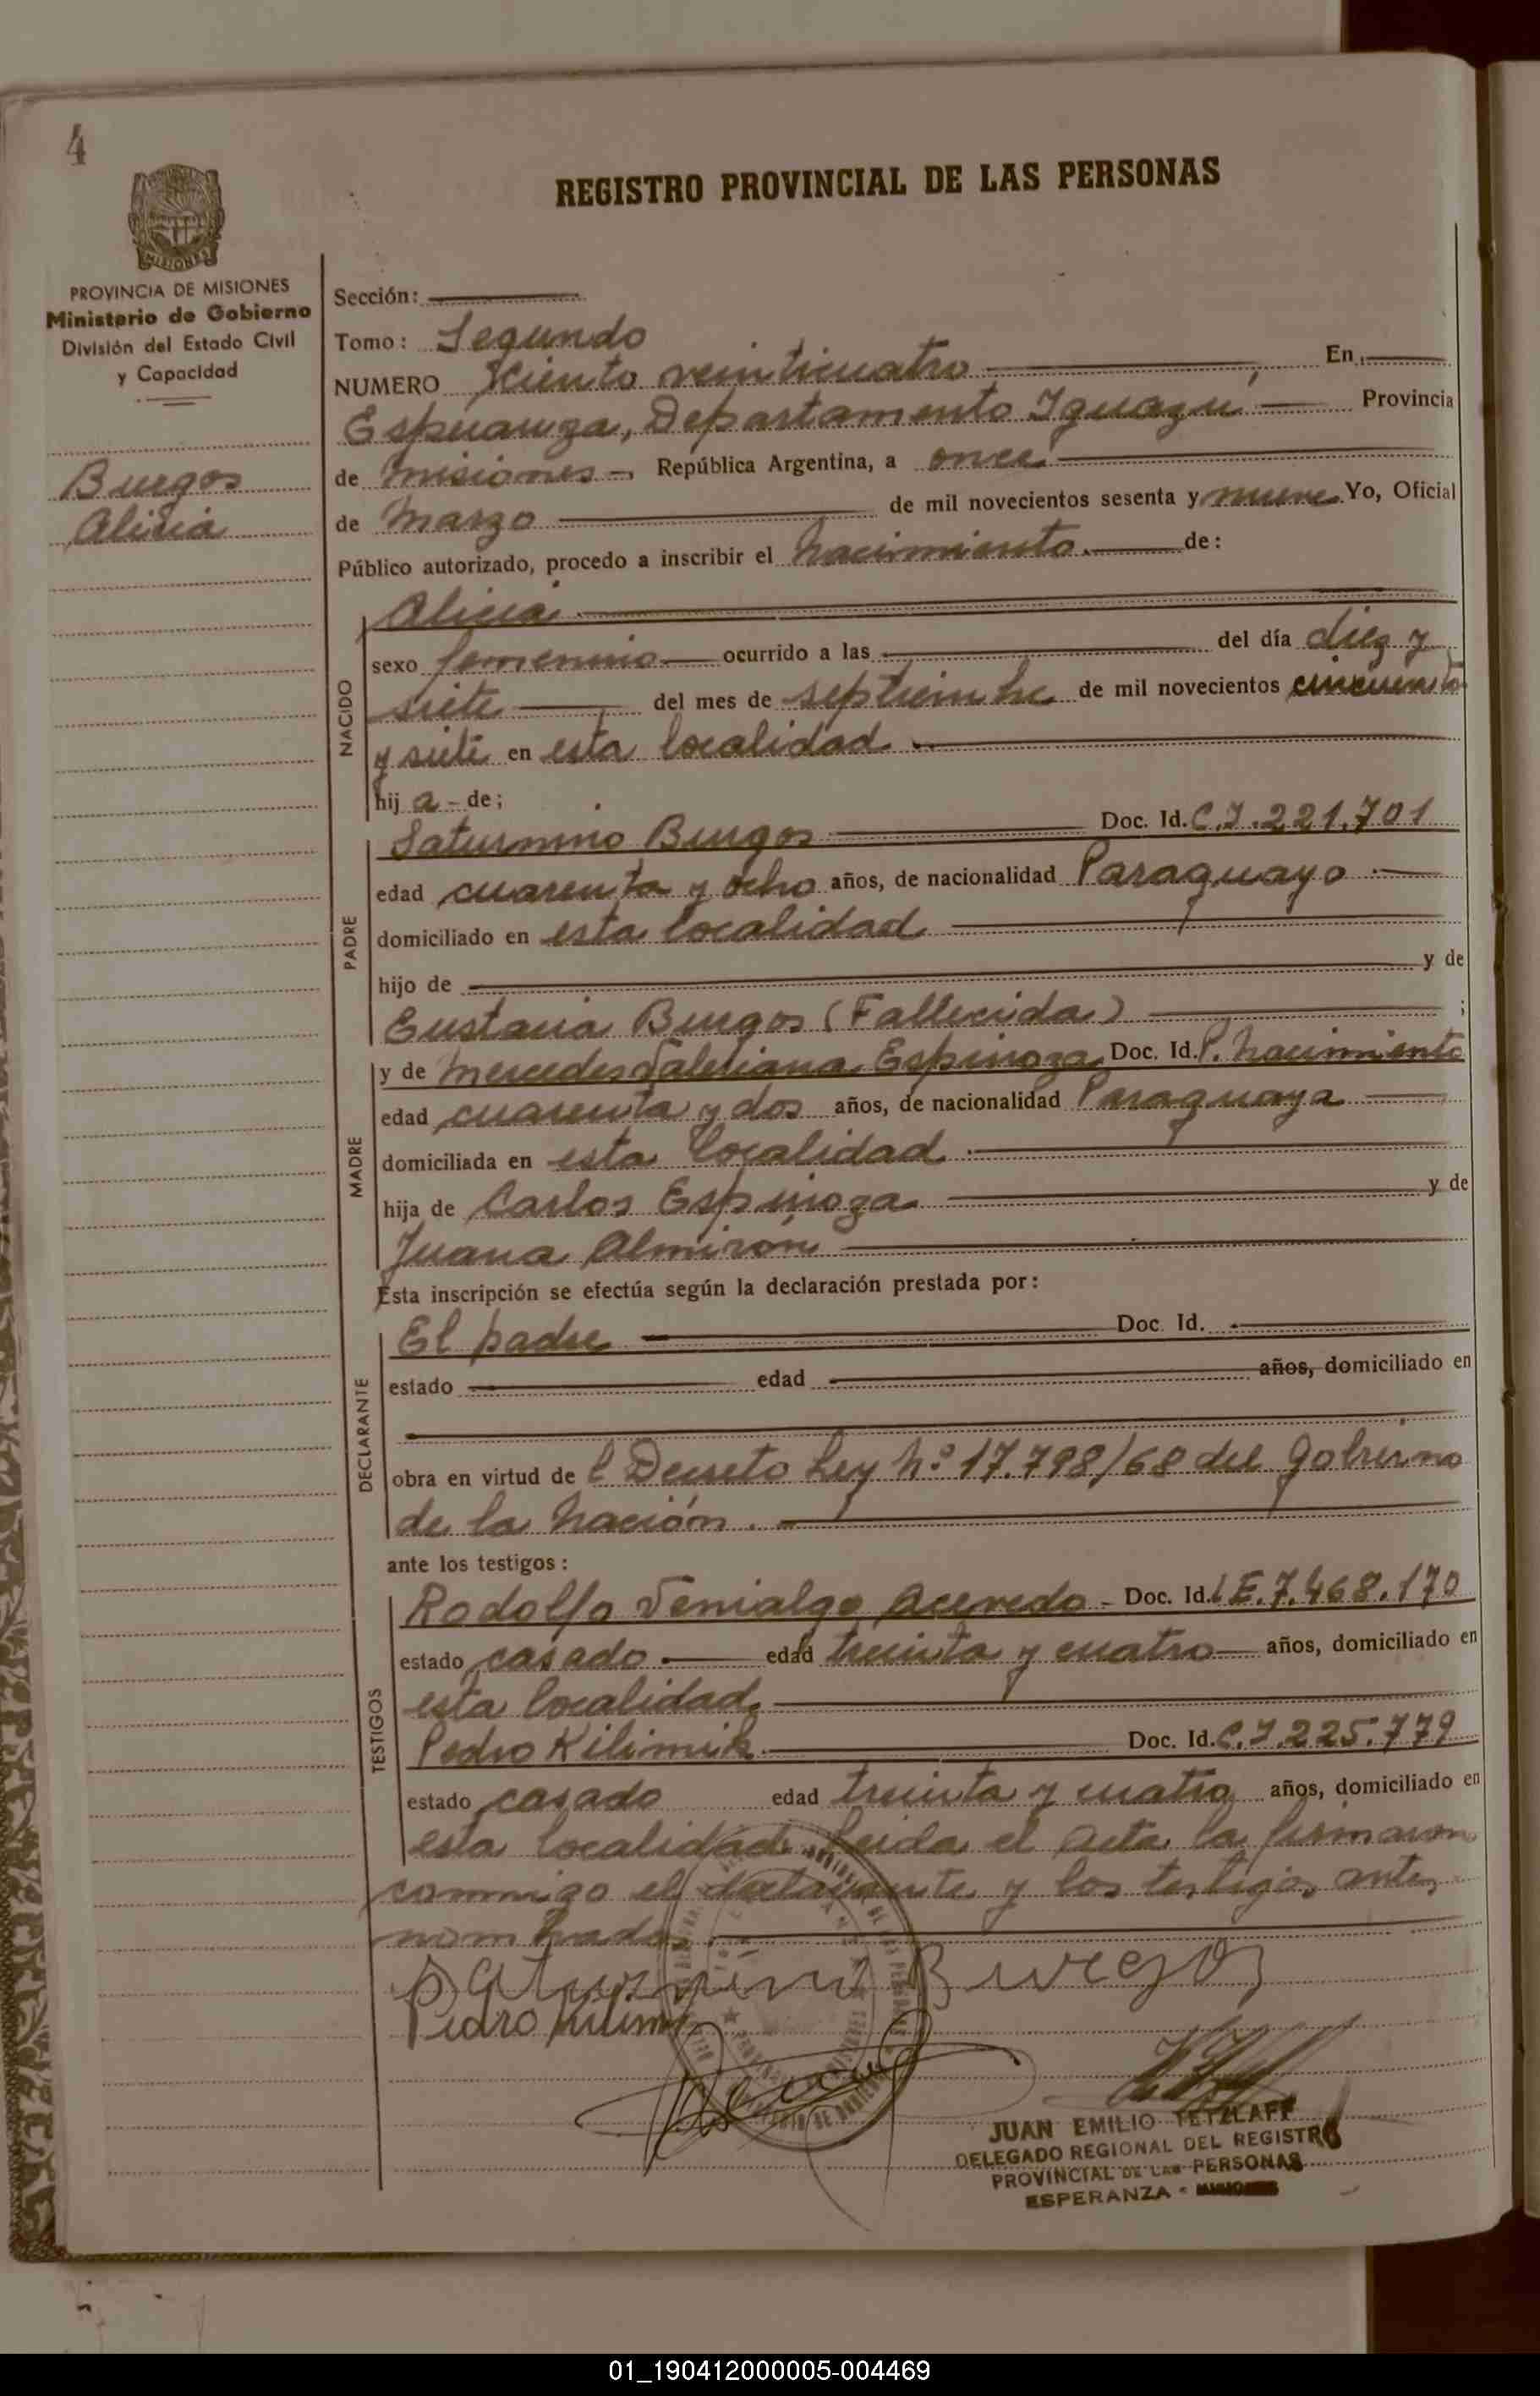 4
REGISTRO PROVINCIAL DE LAS PERSONAS
MISIONES
PROVINCIA DE MISIONES
Ministerio de Gobierno
División del Estado Civil
y Capacidad
Burgos
Alicia
Sección:
Tomo: Segundo
NUMERO Ciento veinticuatro En
Esperanza, Departamento Iguazú Provincia
de Misiones República Argentina, a once
de Marzo de mil novecientos sesenta y nueve Yo, Oficial
Público autorizado, procedo a inscribir el Nacimiento de:
NACIDO
Alicia
sexo femenino ocurrido a las del día diez y
siete del mes de septiembre de mil novecientos cincuenta
y siete en esta localidad
hij a - de;
PADRE
Saturnino Burgos Doc. Id. C.I. 221.701
edad cuarenta y ocho años, de nacionalidad Paraguayo
domiciliado en esta localidad
hijo de y de
Eustacia Burgos (Fallecida) ;
MADRE
y de Mercedes Valeriana Espinoza Doc. Id. P. Nacimiento
edad cuarenta y dos años, de nacionalidad Paraguaya
domiciliada en esta localidad
hija de Carlos Espinoza y de
Juana Almirón
Esta inscripción se efectúa según la declaración prestada por:
DECLARANTE
El padre Doc. Id.
estado edad años, domiciliado en
obra en virtud de l Decreto Ley Nº 17.798/68 del Gobierno
de la Nación.
ante los testigos:
TESTIGOS
Rodolfo Venialgo Acevedo - Doc. Id. L.E. 7.468.170
estado casado edad treinta y cuatro años, domiciliado en
esta localidad.
Pedro Kilimik Doc. Id. C.I. 225.779
estado casado edad treinta y cuatro años, domiciliado en
esta localidad. Leida el acta la firmaron
conmigo el declarante y los testigos antes
nombrados.
Saturnino Burgos
Pedro Kilimik
JUAN EMILIO TETZLAFF
DELEGADO REGIONAL DEL REGISTRO
PROVINCIAL DE LAS PERSONAS
ESPERANZA - MISIONES
01_190412000005-004469